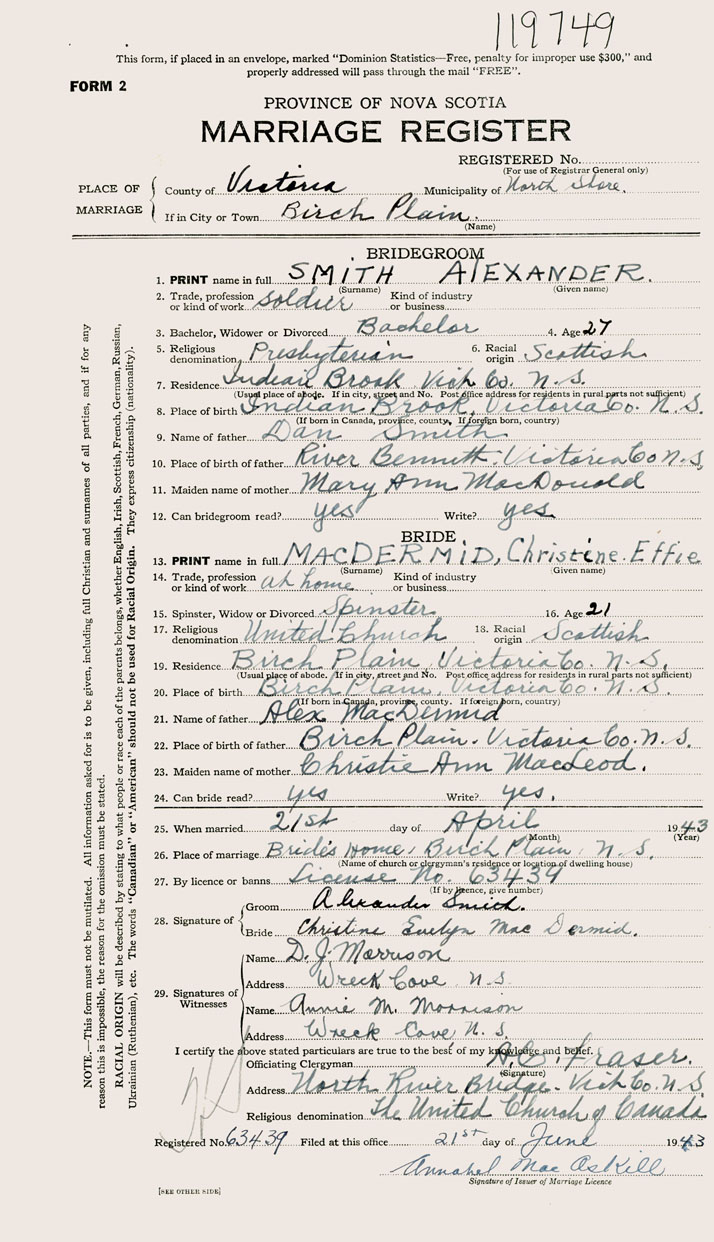 119749
This form, if placed in an envelope, marked "Dominion Statistics—Free, penalty for improper use $300," and
properly addressed will pass through the mail "FREE".
FORM 2
PROVINCE OF NOVA SCOTIA
MARRIAGE REGISTER
REGISTERED No.
(For use of Registrar General only)
PLACE OF MARRIAGE
County of Victoria Municipality of North Shore.
If in City or Town Birch Plain.
(Name)
BRIDEGROOM
1. PRINT name in full SMITH ALEXANDER.
(Surname) (Given name)
2. Trade, profession or kind of work soldier Kind of industry or business
3. Bachelor, Widower or Divorced Bachelor 4. Age 27
5. Religious denomination Presbyterian 6. Racial origin Scottish
7. Residence Indian Brook Vich Co. N.S.
(Usual place of abode. If in city, street and No. Post office address for residents in rural parts not sufficient)
8. Place of birth Indian Brook, Victoria Co. N.S.
(If born in Canada, province, county, If foreign born, country)
9. Name of father Dan Smith
10. Place of birth of father River Bennett. Victoria Co N.S,
11. Maiden name of mother Mary Ann MacDonald
12. Can bridegroom read? yes Write? yes
BRIDE
13. PRINT name in full MACDERMID, Christine. Effie
(Surname) (Given name)
14. Trade, profession or kind of work at home Kind of industry or business
15. Spinster, Widow or Divorced Spinster 16. Age 21
17. Religious denomination United Church 18. Racial origin Scottish
19. Residence Birch Plain, Victoria Co. N.S.
(Usual place of abode. If in city, street and No. Post office address for residents in rural parts not sufficient)
20. Place of birth Birch Plain, Victoria Co. N.S.
(If born in Canada, province, county. If foreign born, country)
21. Name of father Alex MacDermid
22. Place of birth of father Birch Plain. Victoria Co. N.S.
23. Maiden name of mother Christie Ann MacLeod.
24. Can bride read? yes Write? yes.
25. When married 21st day of April 1943
(Month) (Year)
26. Place of marriage Bride's Home, Birch Plain. N.S.
(Name of church or clergyman's residence or location of dwelling house)
27. By licence or banns License No. 63439
(If by licence, give number)
28. Signature of
Groom Alexander Smith.
Bride Christine Evelyn Mac Dermid.
29. Signatures of Witnesses
Name D. J. Morrison
Address Wreck Cove N.S.
Name Annie M. Morrison
Address Wreck Cove N.S.
I certify the above stated particulars are true to the best of my knowledge and belief.
Officiating Clergyman A.C. Fraser.
(Signature)
Address North River Bridge. Vich Co. N.S.
Religious denomination The United Church of Canada
Registered No. 63439 Filed at this office 21st day of June 1943
Annabel Mac Askill
Signature of Issuer of Marriage Licence
[SEE OTHER SIDE]
NOTE.—This form must not be mutilated. All information asked for is to be given, including full Christian and surnames of all parties, and if for any
reason this is impossible, the reason for the omission must be stated.
RACIAL ORIGIN will be described by stating to what people or race each of the parents belongs, whether English, Irish, Scottish, French, German, Russian,
Ukrainian (Ruthenian), etc. The words "Canadian" or "American" should not be used for Racial Origin. They express citizenship (nationality).